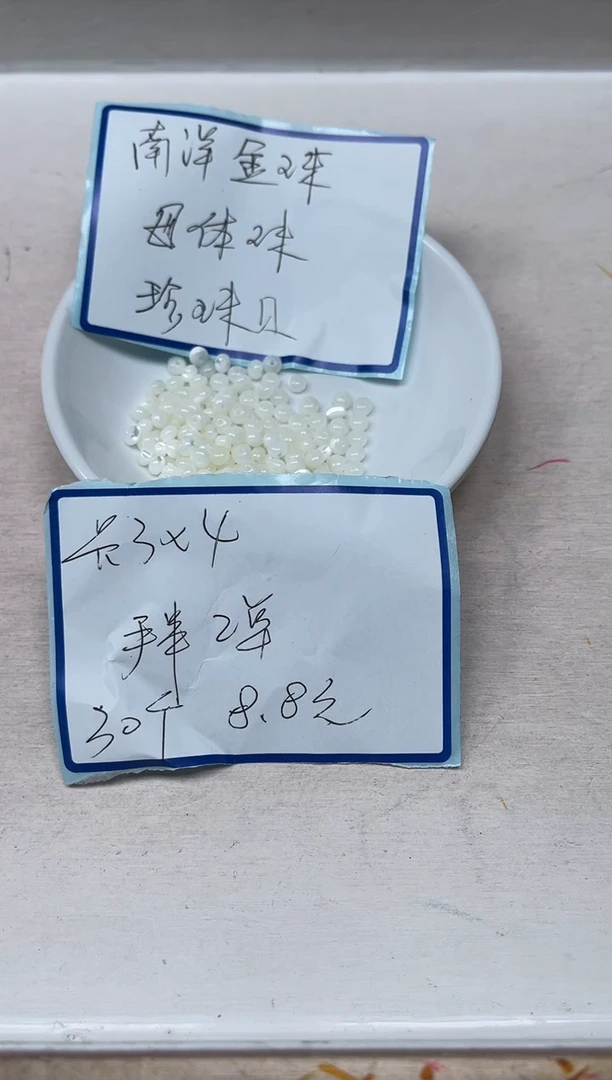 南洋金珠
母体珠
珍珠贝
长3x4
30个 8.8元